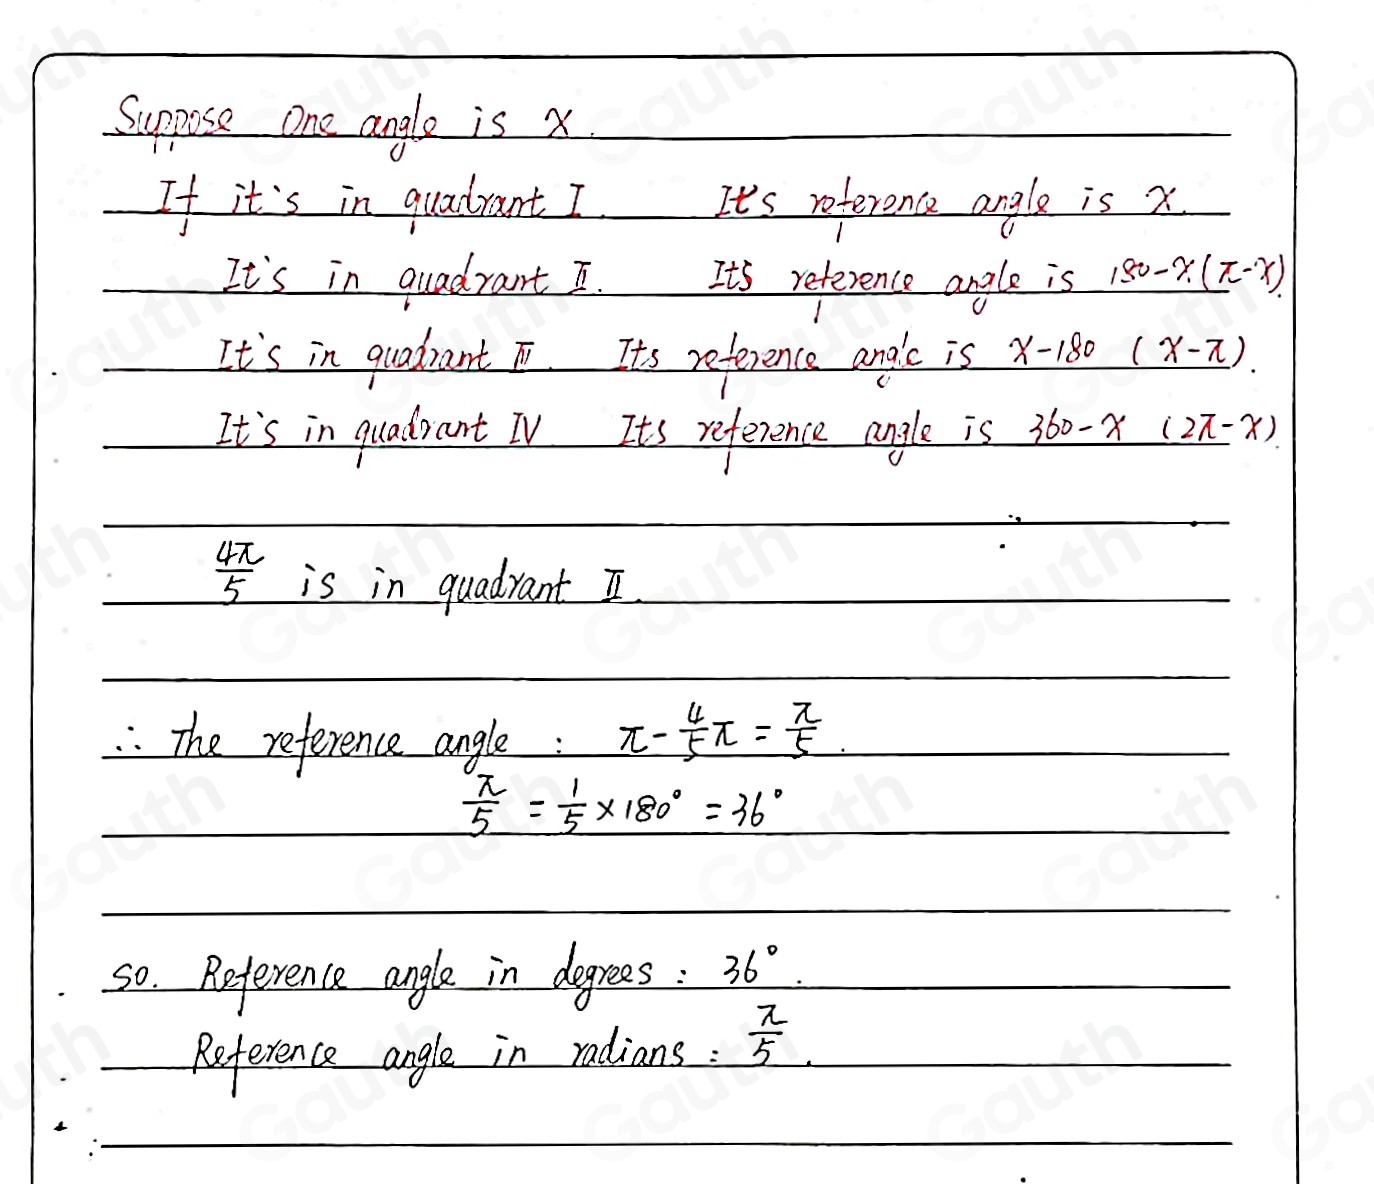 Suppose One angle is x.
If it's in quadrant I. It's reference angle is x.
It's in quadrant II. Its reference angle is 180-x (π-x).
It's in quadrant III. Its reference angle is x-180 (x-π).
It's in quadrant IV Its reference angle is 360-x (2π-x).
4π/5 is in quadrant II.
∴ The reference angle : π - 4/5 π = π/5.
π/5 = 1/5 × 180° = 36°
so. Reference angle in degrees : 36°.
Reference angle in radians : π/5.
Gauth